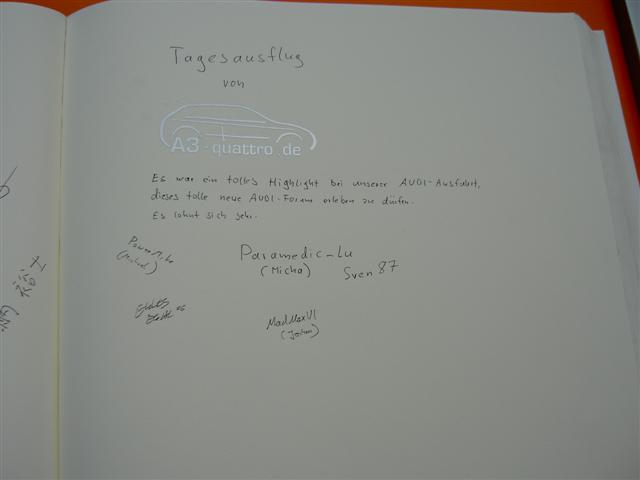 Tagesausflug
von
A3-quattro.de
Es war ein tolles Highlight bei unserer AUDI-Ausfahrt,
dieses tolle neue AUDI-Forum erleben zu dürfen.
Es lohnt sich sehr.
Paramedic-Lu
(Micha)
Sven 87
(Michael)
MadMaxVI
(Jochen)